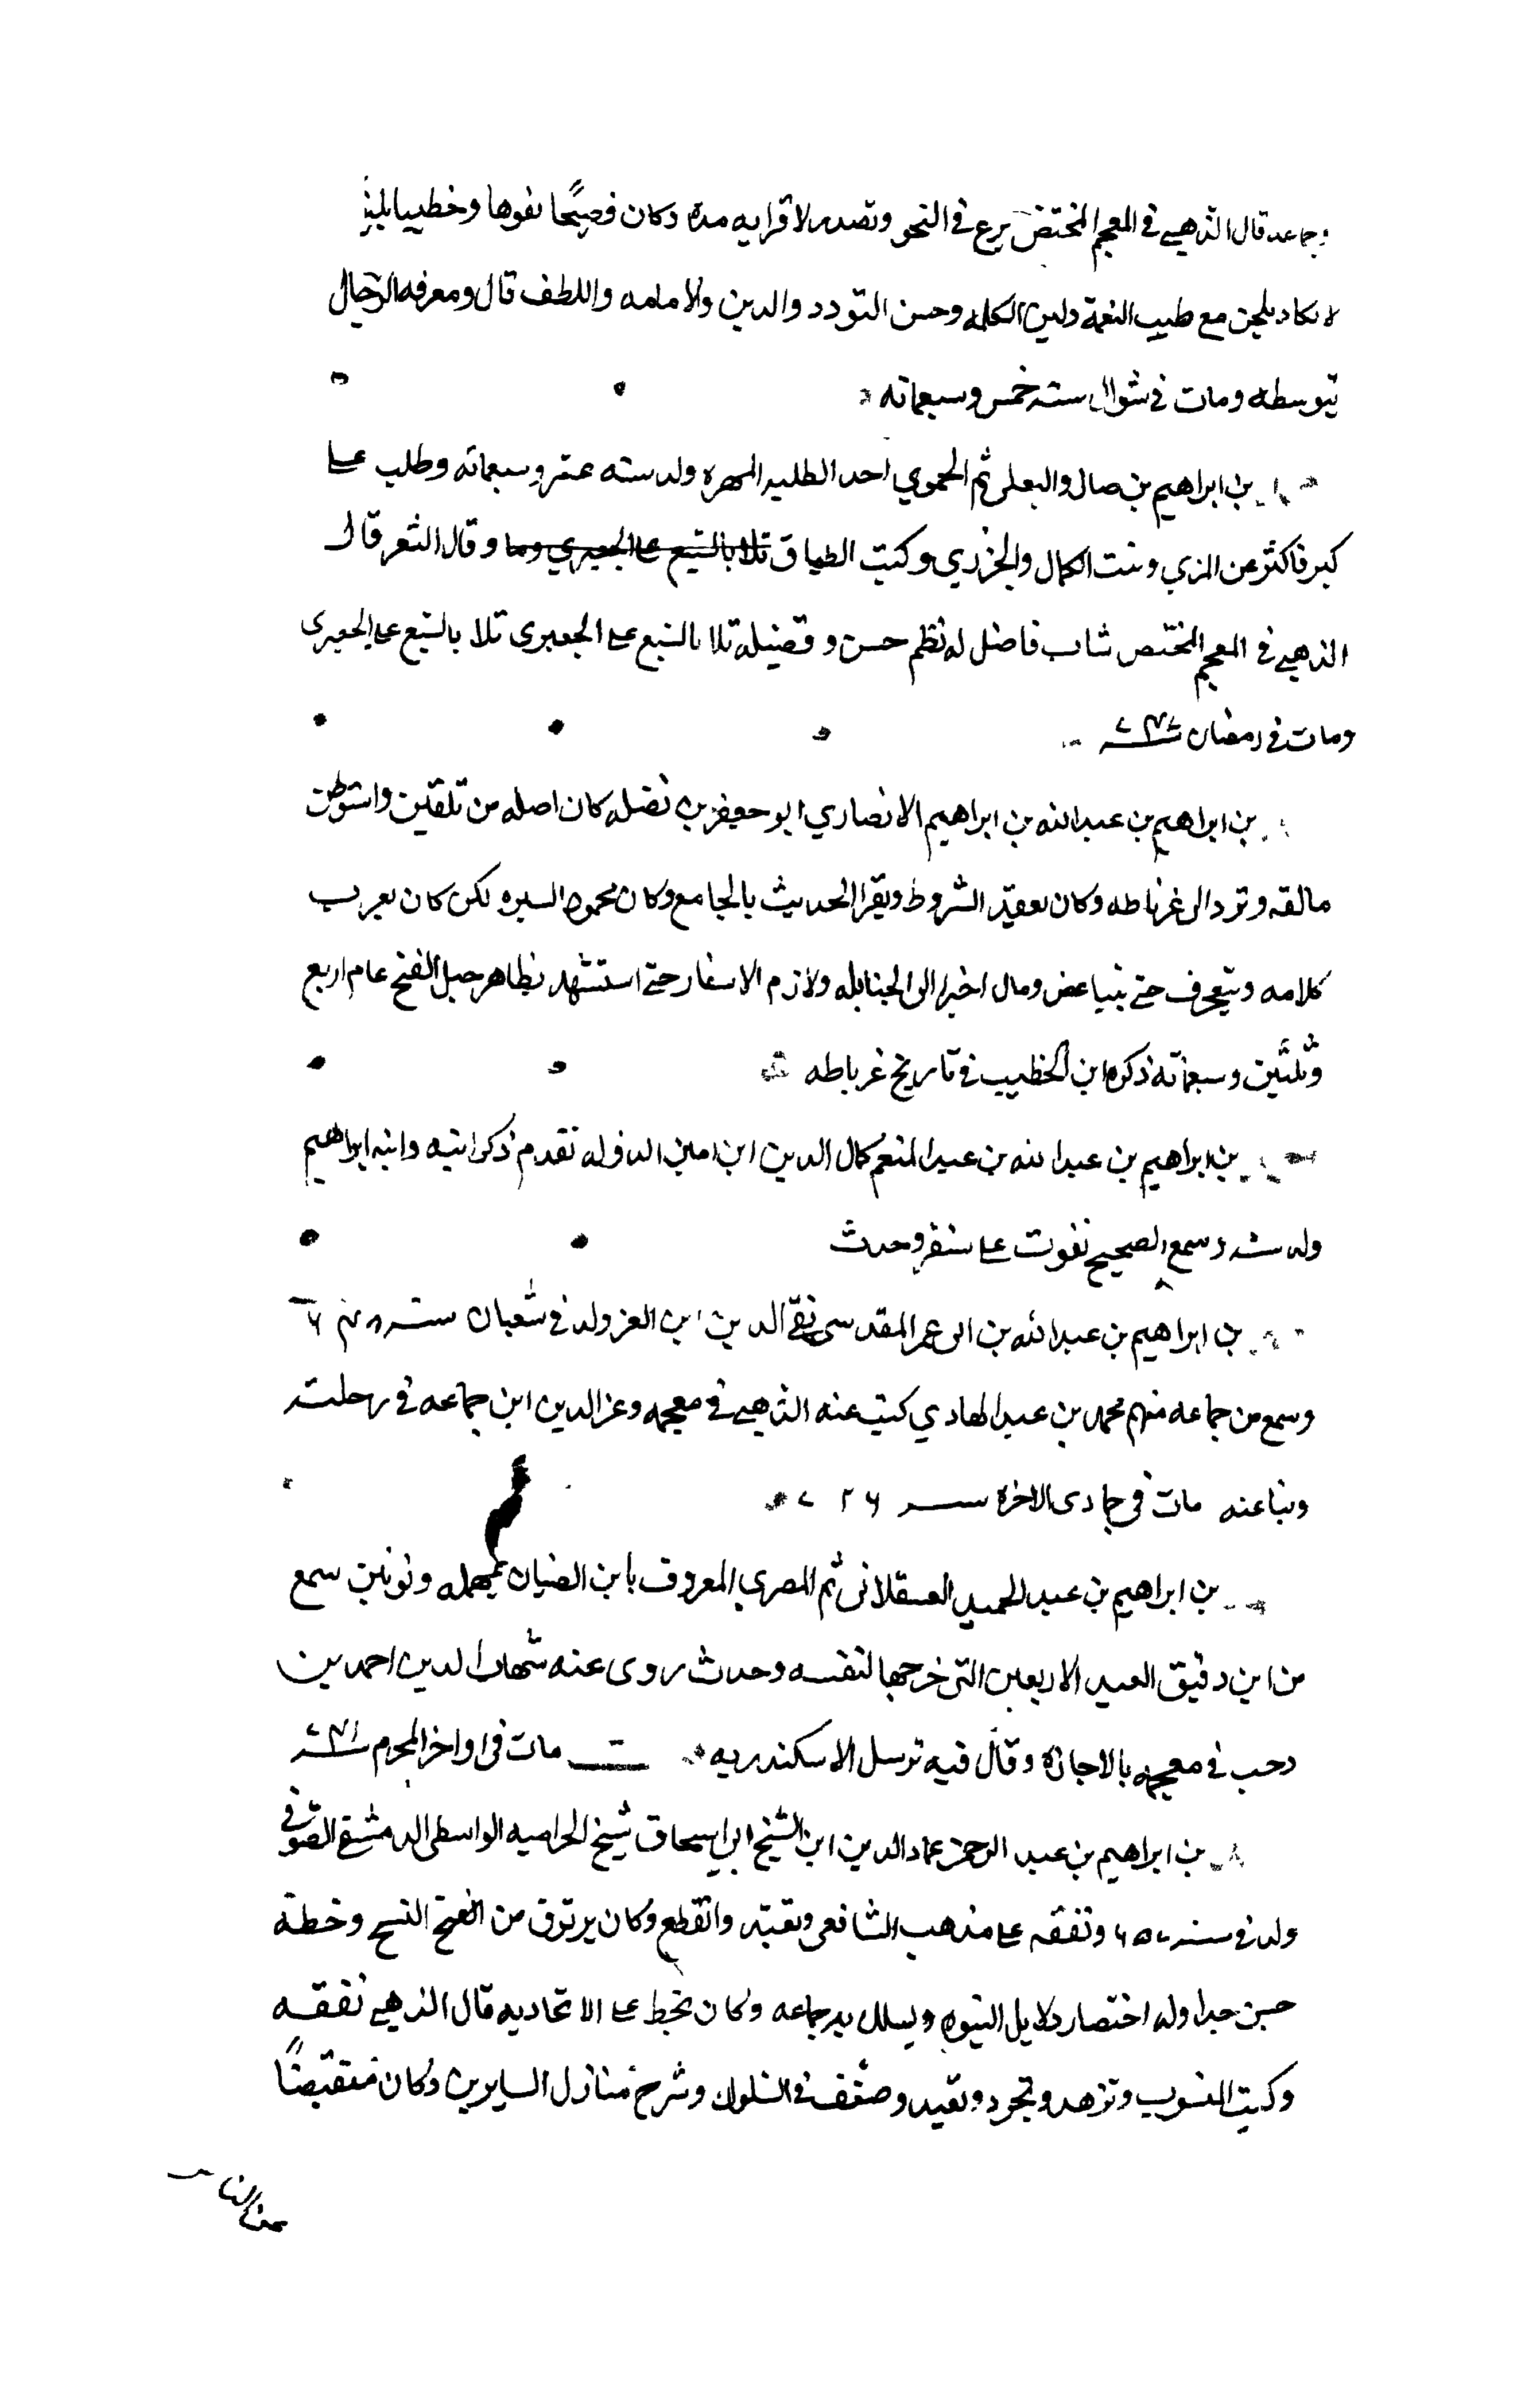 وجماعه قال الذهبي في المعجم المختص برع في النحو وتصدر لاقرايه مده وكان فصيحًا مفوها وخطيبا بليغا
لا يكاد يلحن مع طيب النغمة ولين الكلمه وحسن التودد والدين والامامه واللطف قال ومعرفه الرجال
متوسطه ومات في شوال سنه خمس وسبعمائه
بن ابراهيم بن صارو البعلى ثم الحموي احد الطلبه المهره ولد سنه عشر وسبعمائه وطلب على
كبر فاكثر عن المزي وبنت الكمال والجزري وكتب الطباق تلا بالسبع على الجعبري وما وقال الشعر قال
الذهبي في المعجم المختص شاب فاضل له نظم حسن و فضيله تلا بالسبع على الجعبرى تلا بالسبع على الجعبرى
ومات في رمضان سنه ٧٣٧
بن ابراهيم بن عبد الله بن ابراهيم الانصاري ابو جعفر بن نضله كان اصله من تلقين واستوطن
مالقه وتردد الى غرناطه وكان يعقد الشروط ويقرا الحديث بالجامع وكان محمود السيره لكن كان يعرب
كلامه ويتحرف حتى ومال اخيرا الى الحنابله ولازم الاسفار حتى استشهد بظاهر جبل الفتح عام اربع
وثلثين وسبعمائه ذكره ابن الخطيب في تاريخ غرناطه
بن ابراهيم بن عبد الله بن عبد المنعم كمال الدين ابن امين الدوله تقدم ذكر ابيه وابنه ابراهيم
ولد سنه وسمع الصحيح بفوت على سنقر وحدث
بن ابراهيم بن عبد الله بن ابى عمر المقدسى تقي الدين ابن العز ولد في شعبان سنه
وسمع من جماعه منهم محمد بن عبد الهادي كتب عنه الذهبي في معجمه وعز الدين ابن جماعه في رحلته
عنه مات في جمادى الاخرة سنه ٧٢٦
بن ابراهيم بن عبد الحميد العسقلانى ثم المصري المعروف بابن بمهمله ونونين سمع
من ابن دقيق العيد الاربعين التى خرجها لنفسه وحدث روى عنه شهاب الدين احمد بن
رجب في معجمه بالاجازة وقال فيه نزيل الاسكندريه مات في اواخر المحرم سنه ٧٣١
بن ابراهيم بن عبد الرحمن عماد الدين ابن الشيخ ابى اسحاق شيخ الحزاميه الواسطى الدمشقي الصوفي
ولد في سنه ٦٥٧ وتفقه على مذهب الشافعى وتعبد وانقطع وكان يرتزق من النسخ وخطه
حسن جدا وله اختصار دلايل النبوه ويسلك به جماعه وكان يحط على الاتحاديه قال الذهبي تفقه
وكتب المنسوب وتزهد وتجرد وتعبد وصنف في السلوك وشرح منازل السايرين وكان منقبضًا
عن الناس